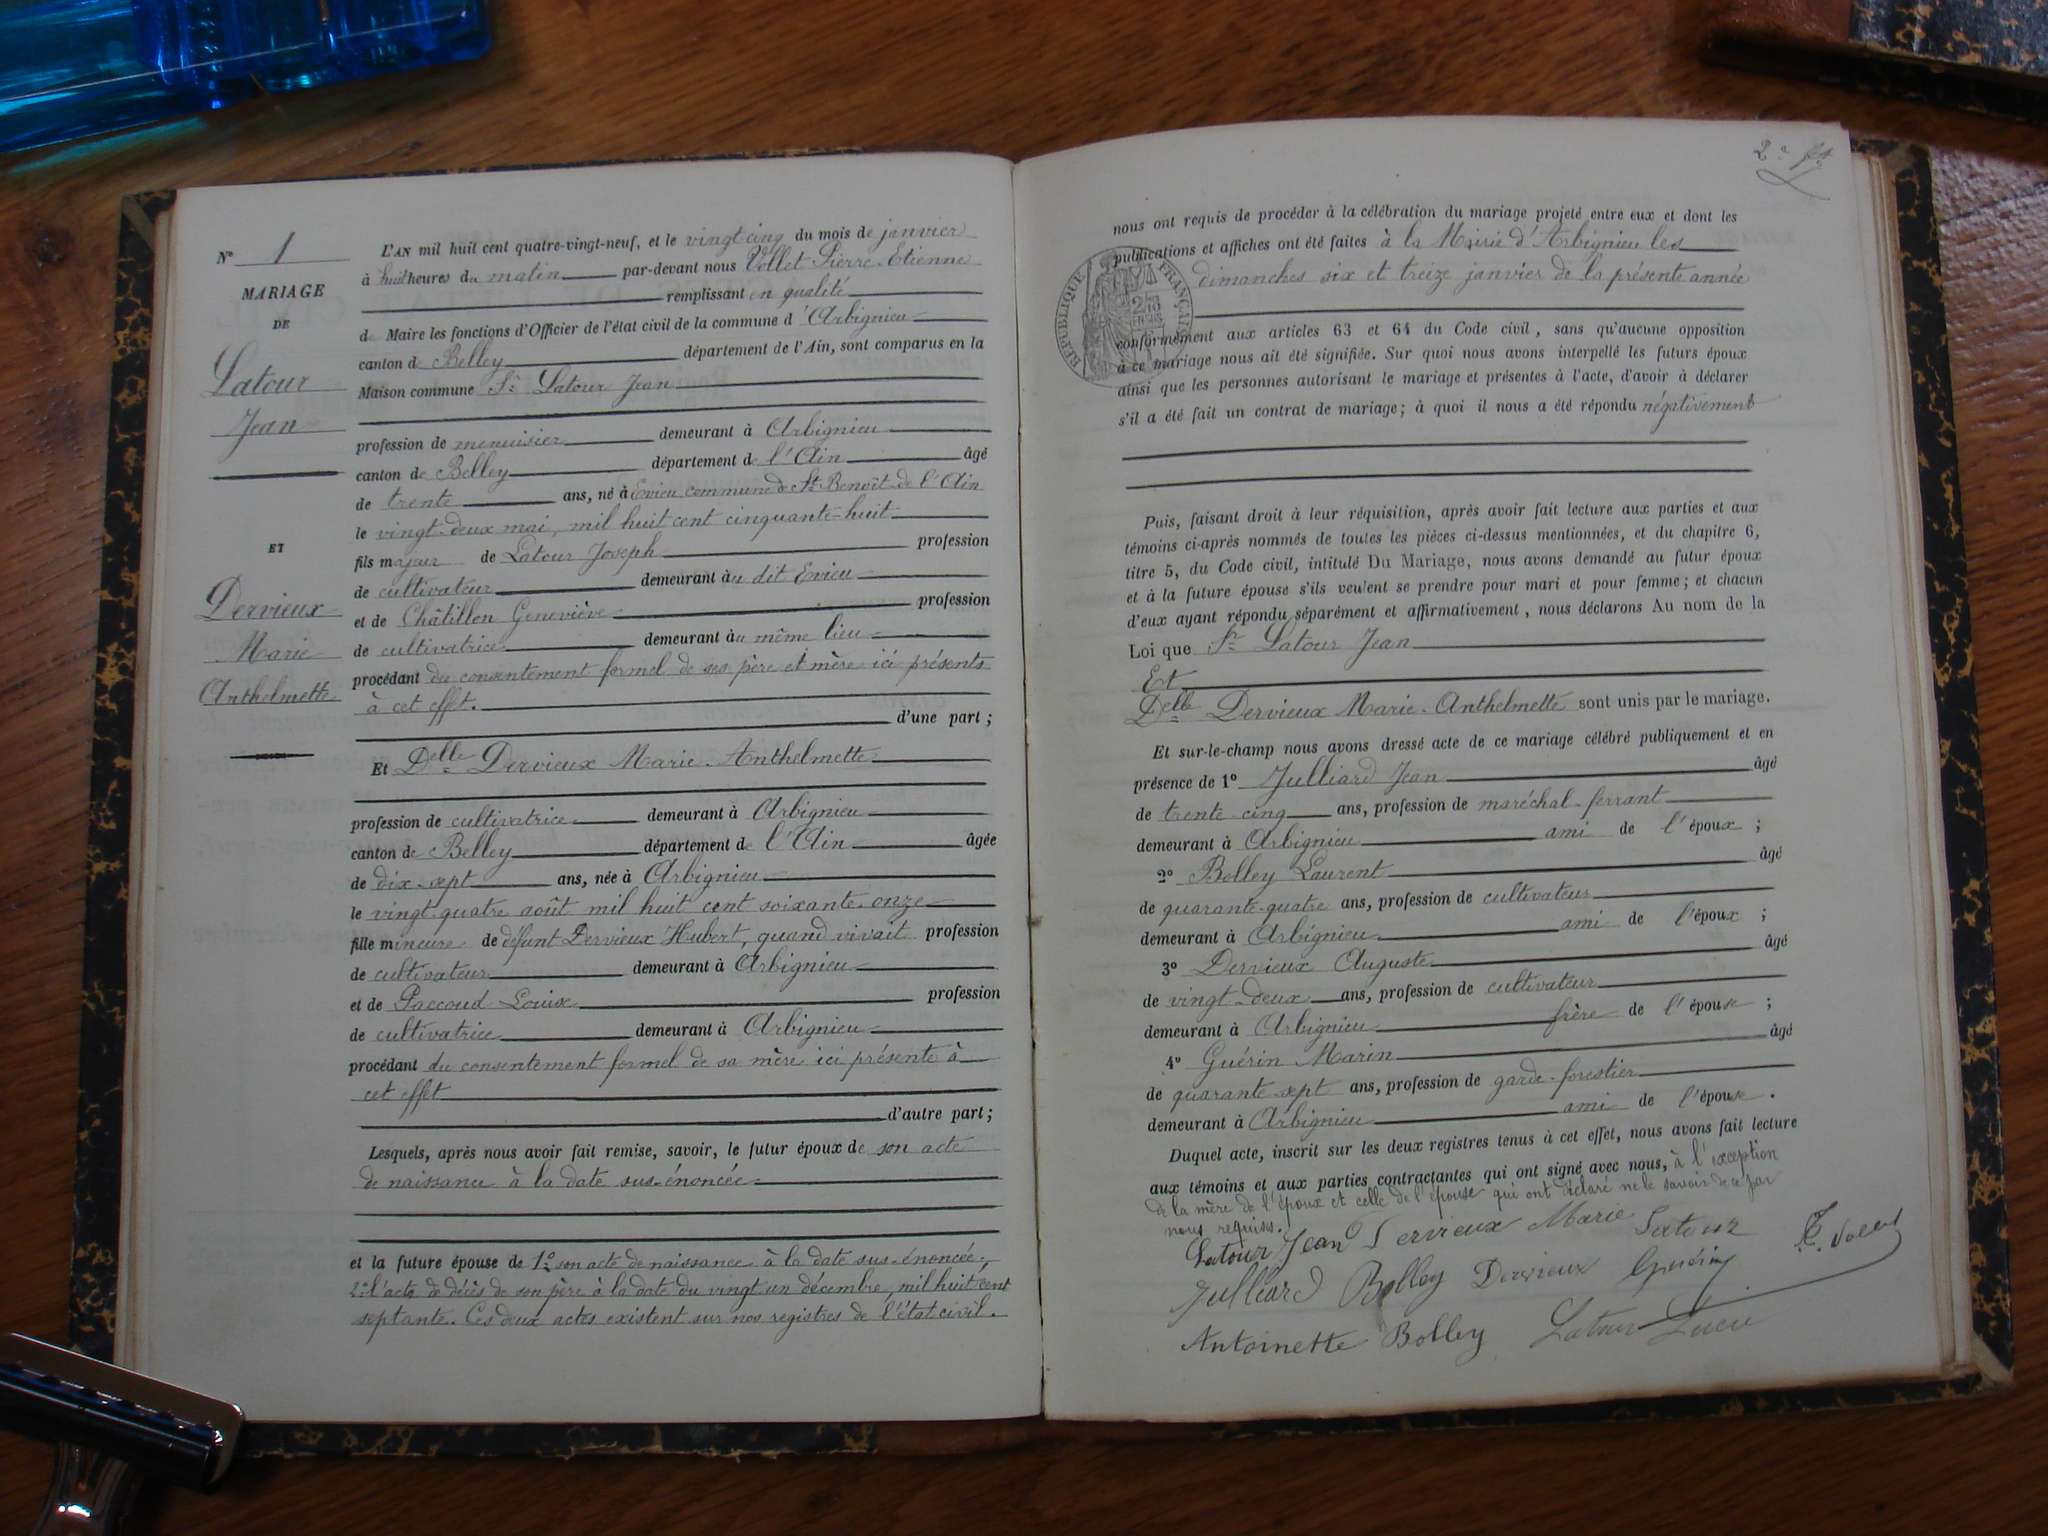 N° 1
MARIAGE
DE
Latour
Jean
ET
Dervieux
Marie
Anthelmette
L'AN mil huit cent quatre-vingt-neuf, et le vingt cinq du mois de janvier
à huit heures du matin par-devant nous Vollet Pierre-Etienne
remplissant en qualité
de Maire les fonctions d'Officier de l'état civil de la commune d'Arbignieu
canton de Belley département de l'Ain, sont comparus en la
Maison commune Sr Latour Jean
profession de menuisier demeurant à Arbignieu
canton de Belley département de l'Ain âgé
de trente ans, né à Evieu commune de St Benoît de l'Ain
le vingt-deux mai, mil huit cent cinquante-huit
fils majeur de Latour Joseph profession
de cultivateur demeurant au dit Evieu
et de Châtillon Geneviève profession
de cultivatrice demeurant au même lieu
procédant du consentement formel de ses père et mère ici présents
à cet effet.
d'une part ;
Et Delle Dervieux Marie-Anthelmette
profession de cultivatrice demeurant à Arbignieu
canton de Belley département de l'Ain âgée
de dix-sept ans, née à Arbignieu
le vingt-quatre août mil huit cent soixante-onze
fille mineure de défunt Dervieux Hubert, quand vivait profession
de cultivateur demeurant à Arbignieu
et de Paccoud Louise profession
de cultivatrice demeurant à Arbignieu
procédant du consentement formel de sa mère ici présente à
cet effet
d'autre part ;
Lesquels, après nous avoir fait remise, savoir, le futur époux de son acte
de naissance à la date sus-énoncée
et la future épouse de 1° son acte de naissance à la date sus-énoncée.
2° l'acte de décès de son père à la date du vingt un décembre, mil huit cent
septante. Ces deux actes existent sur nos registres de l'état civil.
2e ft
nous ont requis de procéder à la célébration du mariage projeté entre eux et dont les
publications et affiches ont été faites à la Mairie d'Arbignieu les
dimanches six et treize janvier de la présente année
RÉPUBLIQUE FRANÇAISE
conformément aux articles 63 et 64 du Code civil, sans qu'aucune opposition
à ce mariage nous ait été signifiée. Sur quoi nous avons interpellé les futurs époux
ainsi que les personnes autorisant le mariage et présentes à l'acte, d'avoir à déclarer
s'il a été fait un contrat de mariage ; à quoi il nous a été répondu négativement
Puis, faisant droit à leur réquisition, après avoir fait lecture aux parties et aux
témoins ci-après nommés de toutes les pièces ci-dessus mentionnées, et du chapitre 6,
titre 5, du Code civil, intitulé Du Mariage, nous avons demandé au futur époux
et à la future épouse s'ils veulent se prendre pour mari et pour femme ; et chacun
d'eux ayant répondu séparément et affirmativement, nous déclarons Au nom de la
Loi que Sr Latour Jean
Et
Delle Dervieux Marie-Anthelmette sont unis par le mariage.
Et sur-le-champ nous avons dressé acte de ce mariage célébré publiquement et en
présence de 1° Julliard Jean âgé
de trente-cinq ans, profession de maréchal-ferrant
demeurant à Arbignieu ami de l'époux ;
2° Bolley Laurent âgé
de quarante-quatre ans, profession de cultivateur
demeurant à Arbignieu ami de l'époux ;
3° Dervieux Auguste âgé
de vingt-deux ans, profession de cultivateur
demeurant à Arbignieu frère de l'épouse ;
4° Guérin Marin âgé
de quarante-sept ans, profession de garde-forestier
demeurant à Arbignieu ami de l'épouse.
Duquel acte, inscrit sur les deux registres tenus à cet effet, nous avons fait lecture
aux témoins et aux parties contractantes qui ont signé avec nous, à l'exception
de la mère de l'époux et celle de l'épouse qui ont déclaré ne le savoir de ce par
nous requises.
Latour Jean Dervieux Marie Latour
Julliard Bolley Dervieux Guérin E. Vollet
Antoinette Bolley Latour Lucie